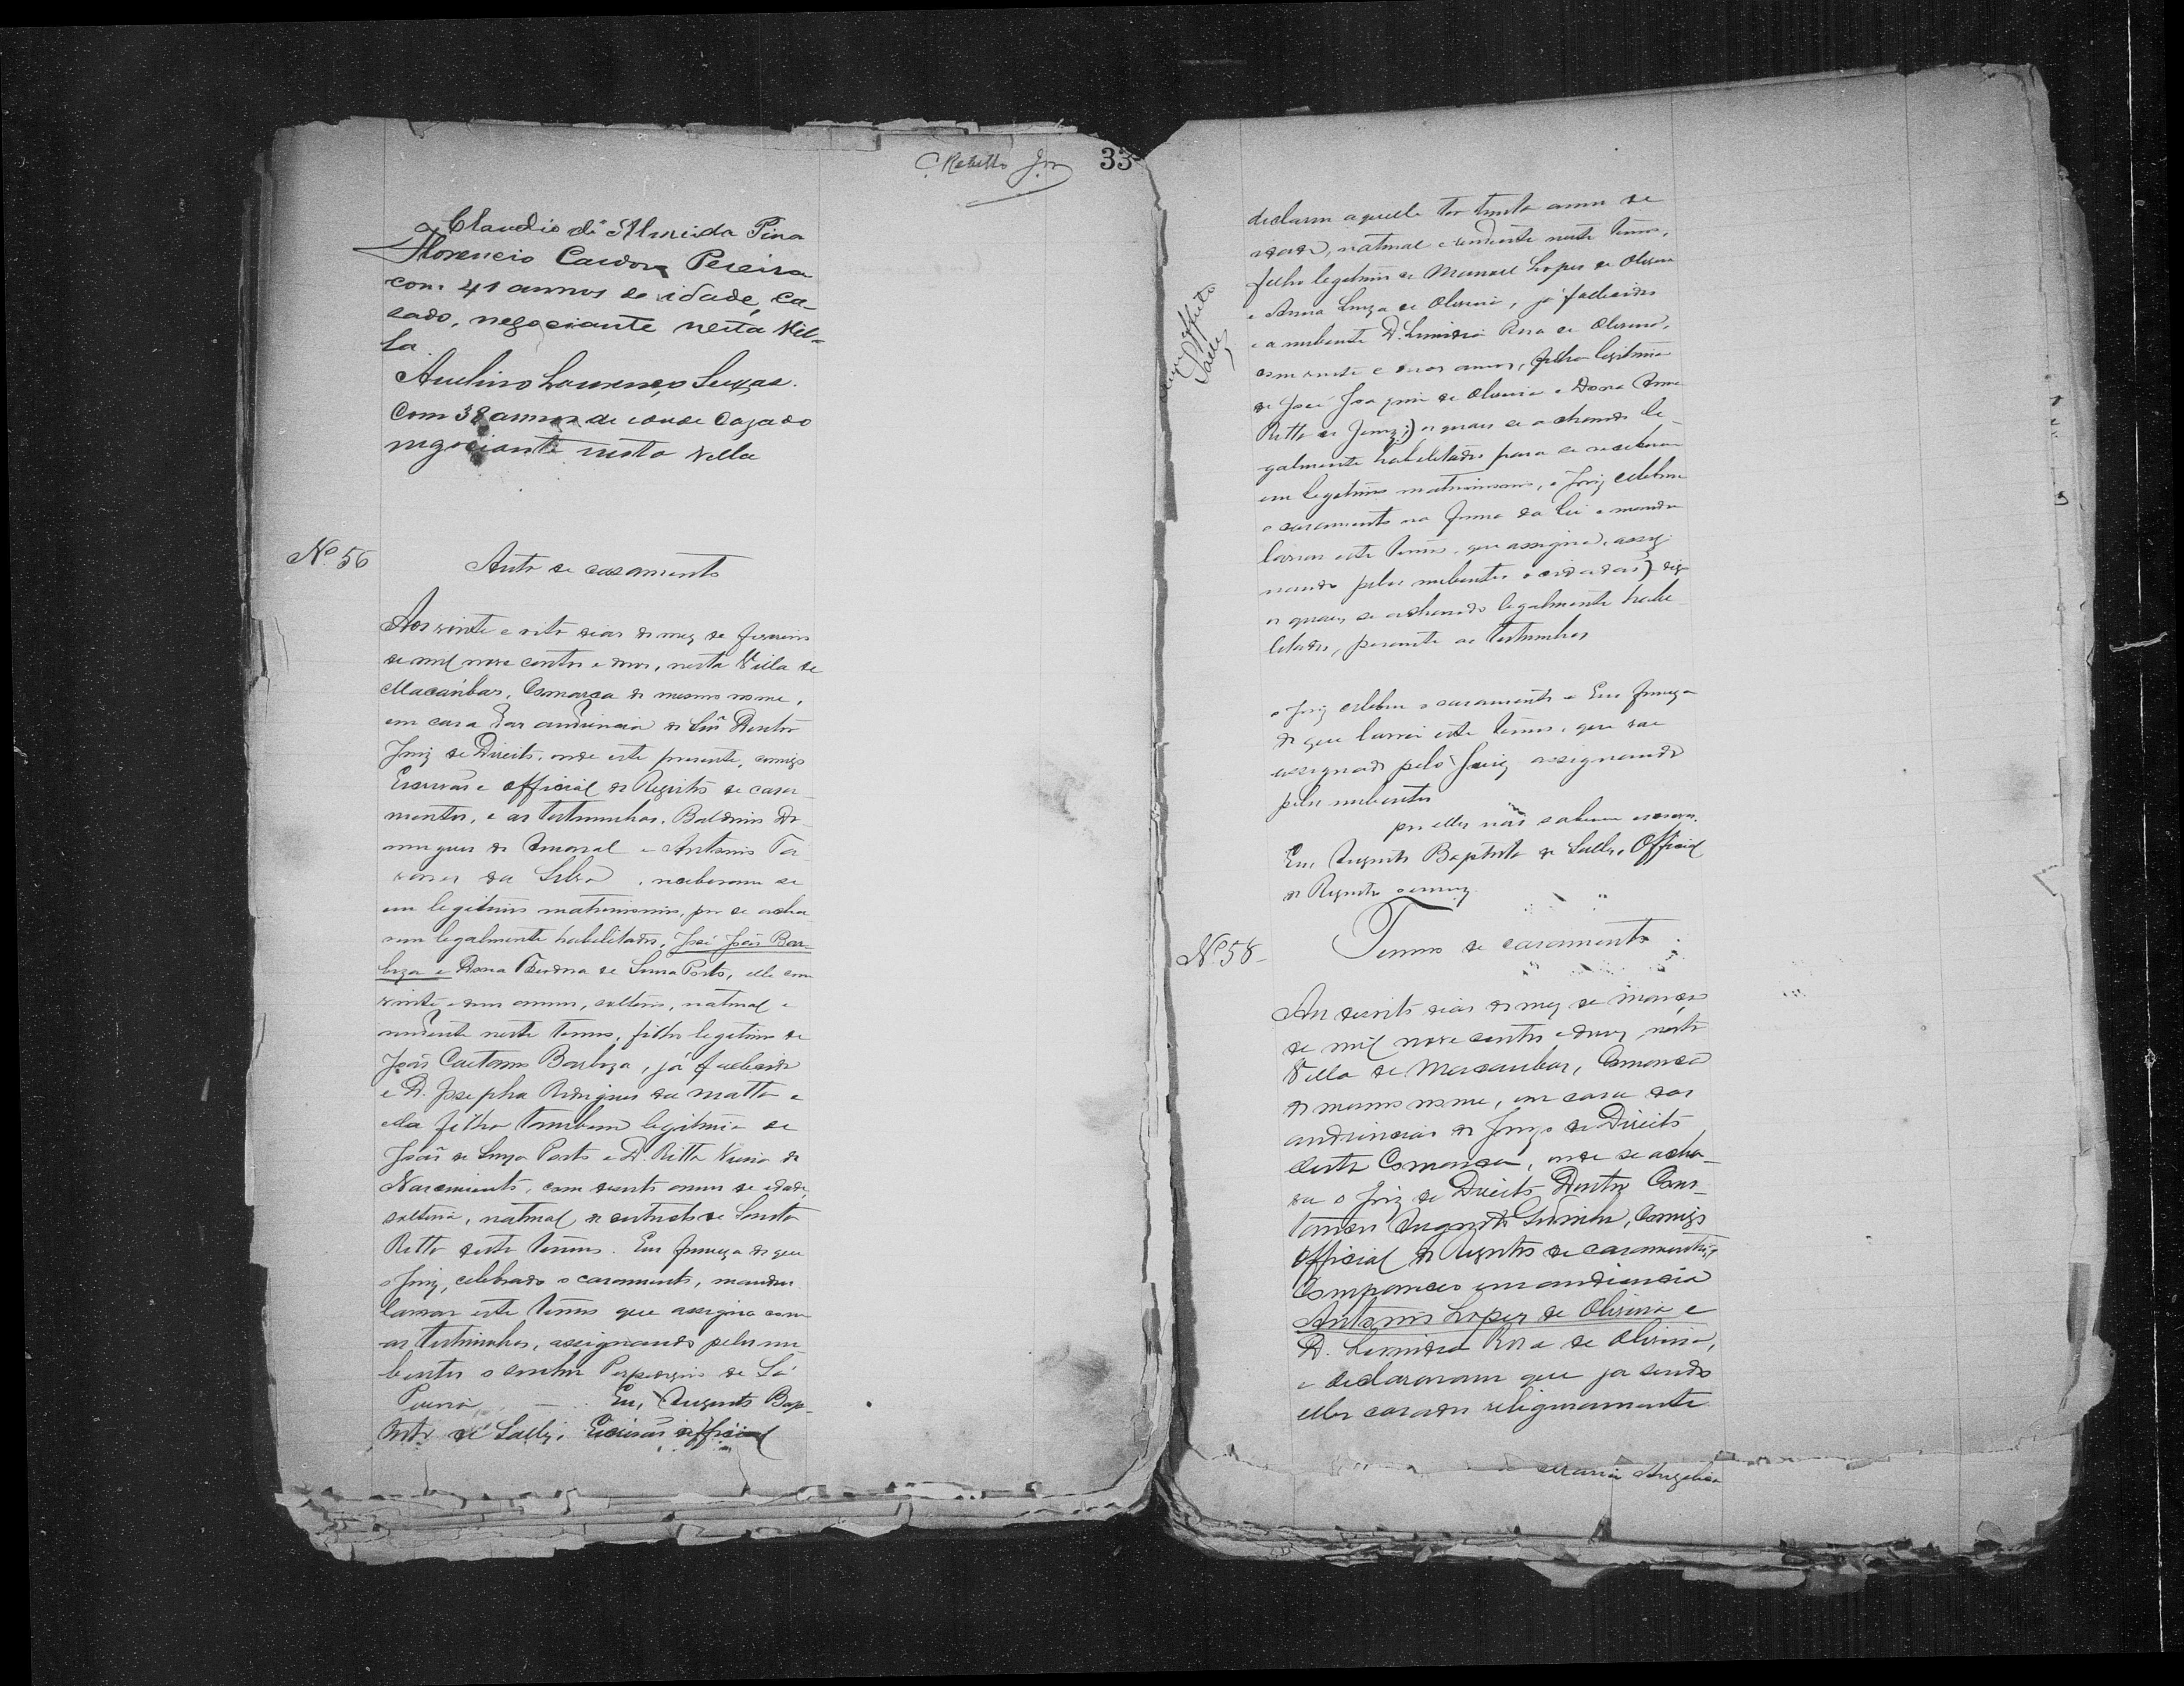 C. Rabello Jor
33
Claudio de Almeida Pina
Florencio Cardoso Pereira
com 41 annos de idade, ca-
sado, negociante nesta Vil-
la
Avelino Lourenço Seixas.
Com 38 annos de idade Cazado
negociante nesta Villa
No. 56
Auto de casamento
Aos vinte e oito dias do mez de fevereiro
de mil nove centos e dous, nesta Villa de
Macaúbas, Comarca do mesmo nome,
em casa das audiencia do Snr. Doutor
Juiz de Direito, onde este presente, comigo
Escrivão e official do Registro de casa-
mentos, e as testemunhas, Balduino Do-
mingues do Amaral e Antonio Ta-
vares da Silva, receberam se
em legitimo matrimonio, por se acha-
rem legalmente habilitados, José João Bar-
boza e Dona de Souza Porto, elle com
vinte e um annos, solteiro, natural e
residente neste termo, filho legitimo de
João Caetano Barboza, já fallecido
e D. Josepha Rodrigues da Matta e
ella filha tambem legitima de
João de Souza Porto e D. Ritta Vieira do
Nascimento, com annos de idade,
solteira, natural do districto de Santa
Ritta deste termo. Em firmeza do que
o Juiz, celebrado o casamento, mandou
lavrar este termo que assigna com
as testemunhas, assignando pelos nu-
bentes o senhor de Sá
Pereira. Eu, Augusto Bap-
tista de Salles, Escrivão official
declaram aquelle ter trinta annos de
idade, natural e residente neste termo,
filho legitimo de Manoel Lopes de Oliveira
e Anna Luiza de Oliveira, já fallecidos
e a nubente D. Rosa de Oliveira,
com vinte e dous annos, filha legitima
de José Joaquim de Oliveira e Dona Anna
Ritta de Jesus;) os quaes se achando le-
galmente habilitados para se receberem
em legitimo matrimonio, o Juiz celebrou
o casamento na forma da lei e mandou
lavrar este termo, que assigna, assig-
nando pelos nubentes o cidadão) digo
os quaes, se achando legalmente habi-
litados, perante as testemunhas
o Juiz celebrou o casamento e Em firmeza
do que lavrei este termo, que vae
assignado pelo Juiz assignando
pelos nubentes
por elles não saberem escrever.
Eu, Augusto Baptista de Salles, Official
do Registro o escrevi
No. 58
Termo de casamento
Aos dezoito dias do mez de março
de mil nove centos e dous, nesta
Villa de Macaubas, Comarca
do mesmo nome, em casa das
audiencias do Juizo de Direito
desta Comarca, onde se acha-
va o Juiz de Direito Doutor
Augusto comigo
Official do Registro de casamentos,
Compareceo em audiencia
Antonio Lopes de Oliveira e
D. Rosa de Oliveira,
e declararam que ja sendo
elles casados religiosamente
Maria Angelica